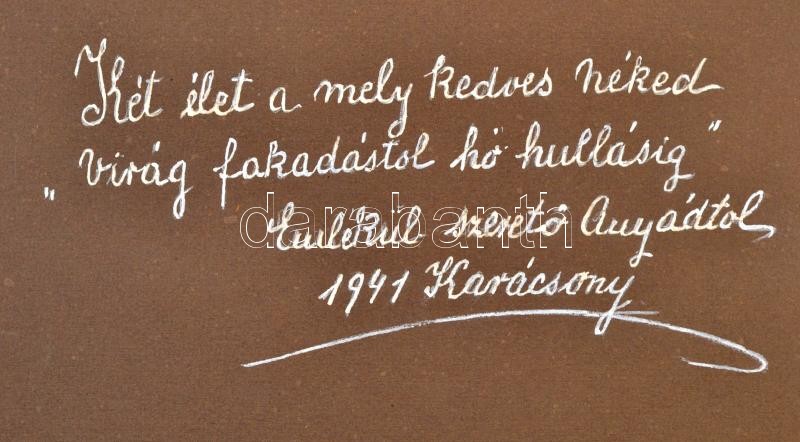 Két élet a mely kedves néked
" virág fakadástol hó hullásig "
Emlékül szerető Anyádtol
darabanth
1941 Karácsony